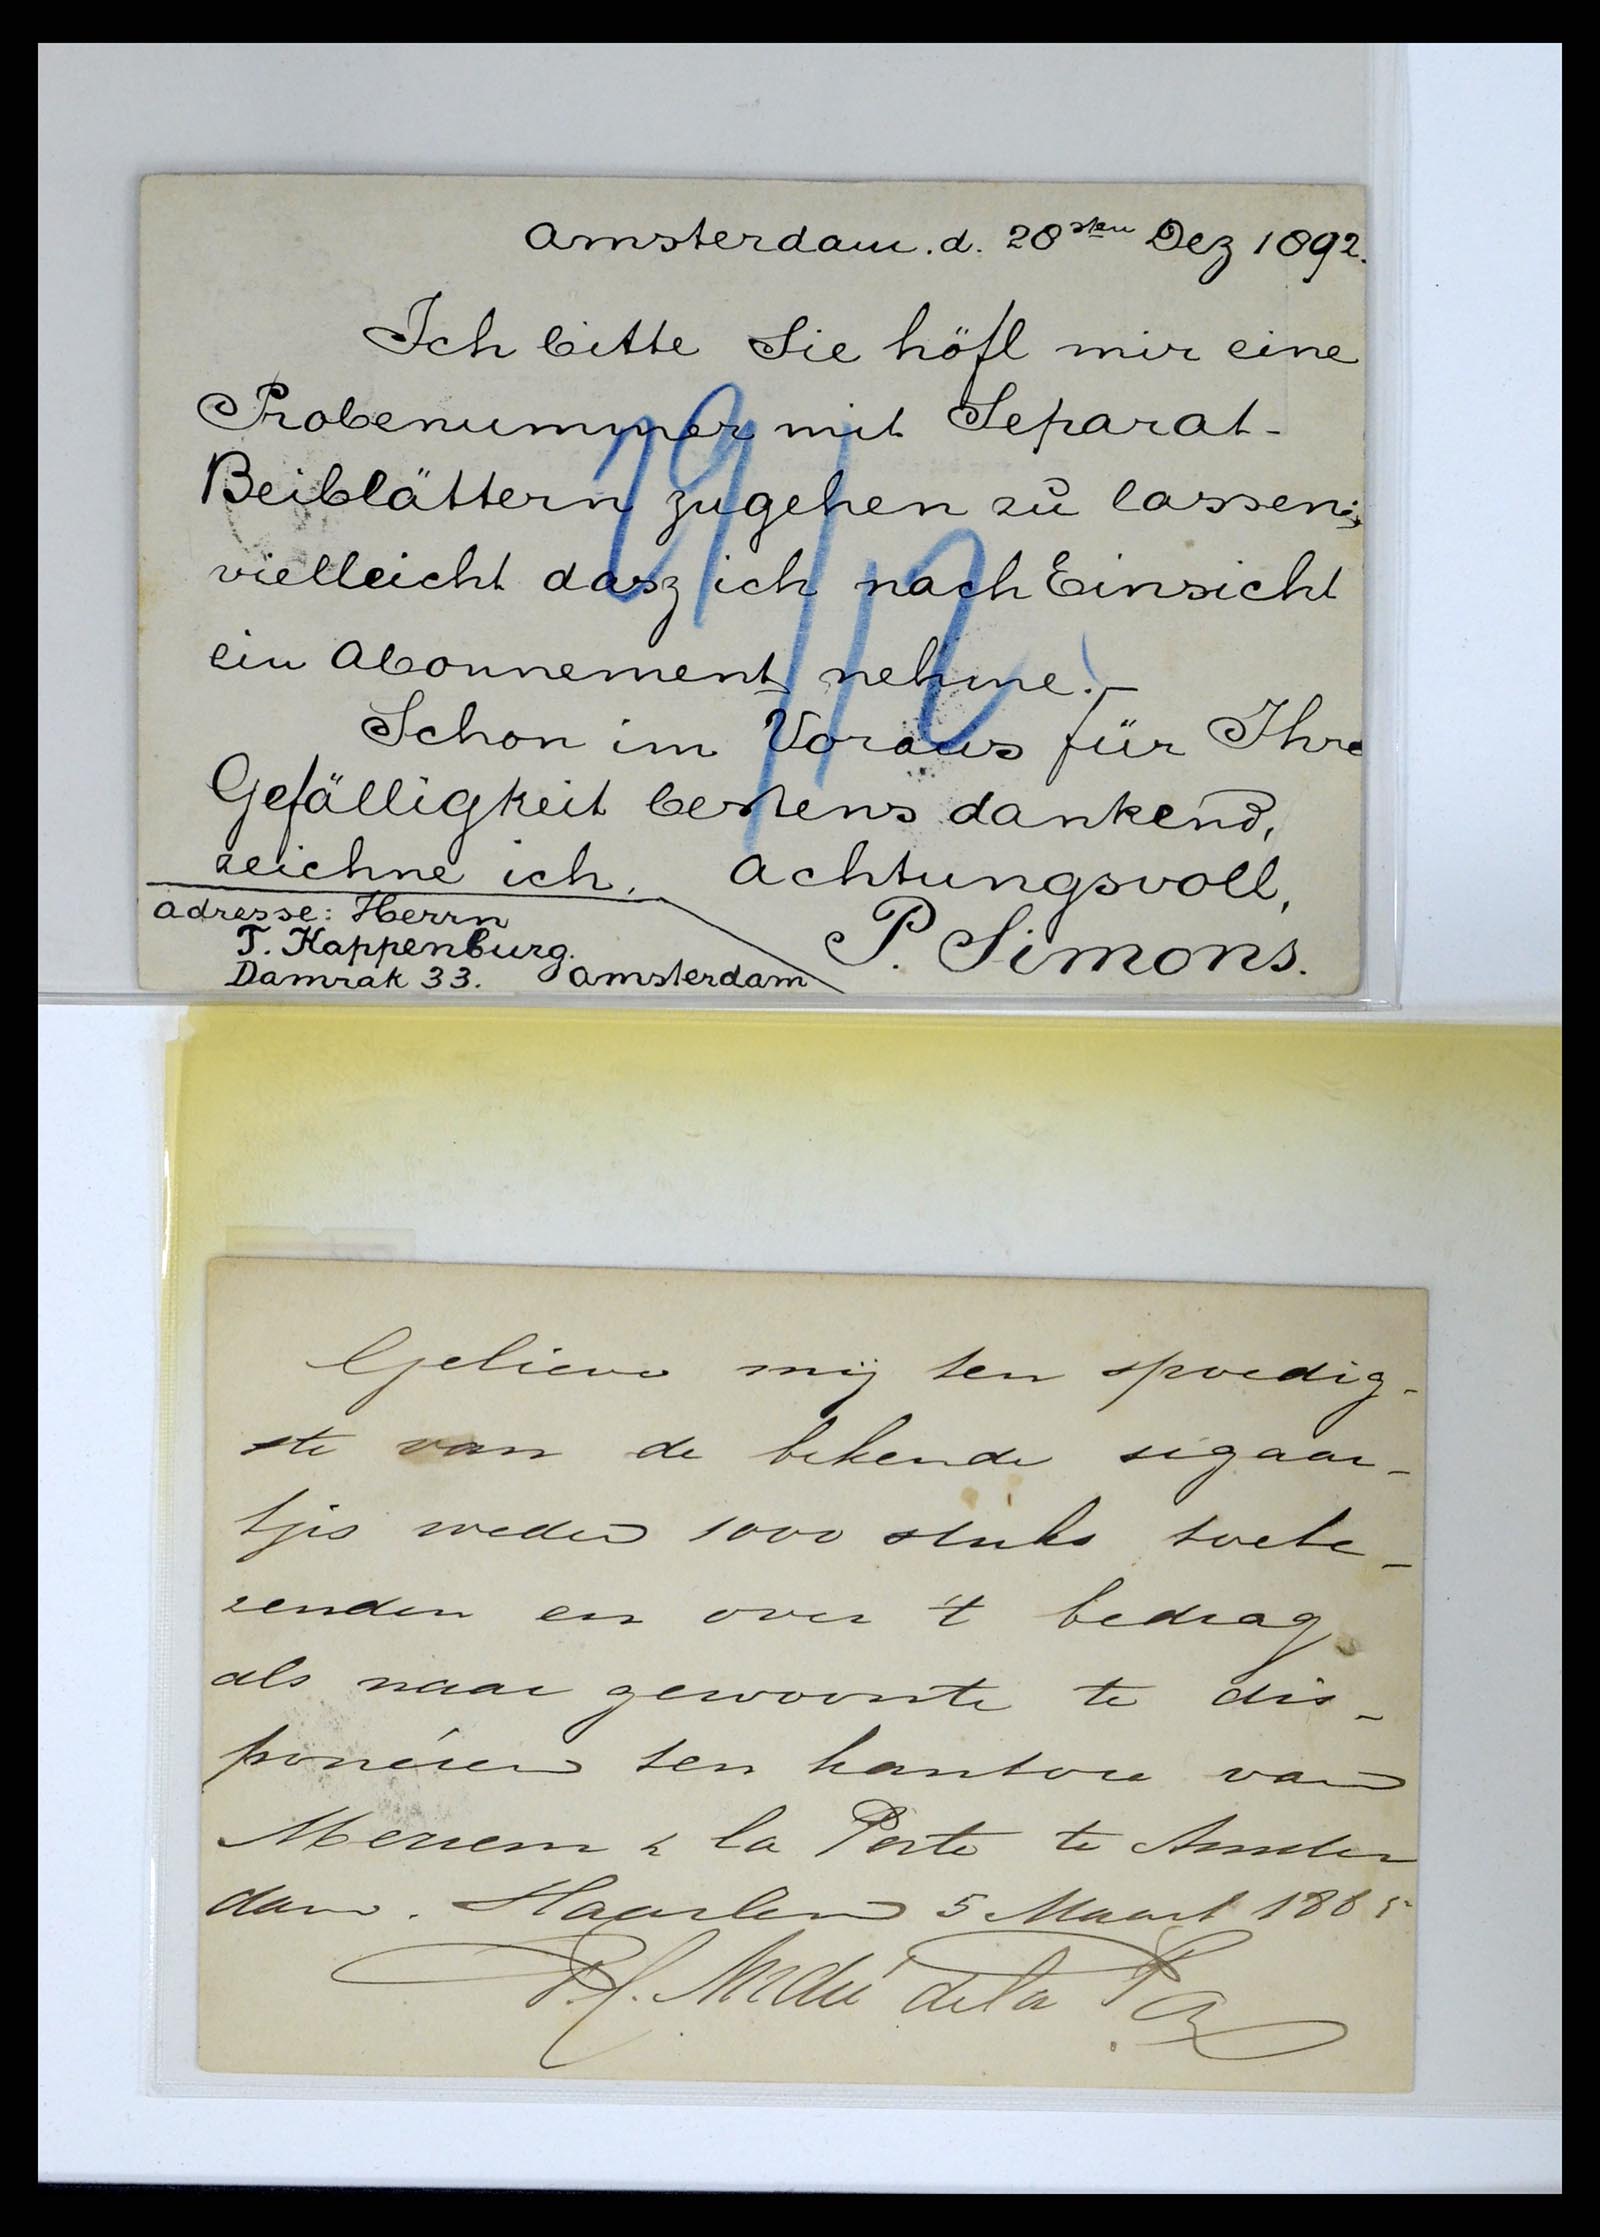 Amsterdam. d. 28sten Dez 1892.
Ich bitte Sie höfl mir eine
Probenummer mit Separat-
Beiblättern zugehen zu lassen;
vielleicht dasz ich nach Einsicht
ein Abonnement nehme.—
Schon im Voraus für Ihre
Gefälligkeit bestens dankend,
zeichne ich, Achtungsvoll,
P. Simons.
Adresse: Herrn
T. Kappenburg.
Damrak 33. Amsterdam
29/12
Gelieve mij ten spoedig-
ste van de bekende sigaar-
tjes weder 1000 stuks toete-
zenden en over 't bedrag
als naar gewoonte te dis-
poneéren ten kantore van
& la Porte te Amster
dam. Haarlem 5 Maart 1885
André de la